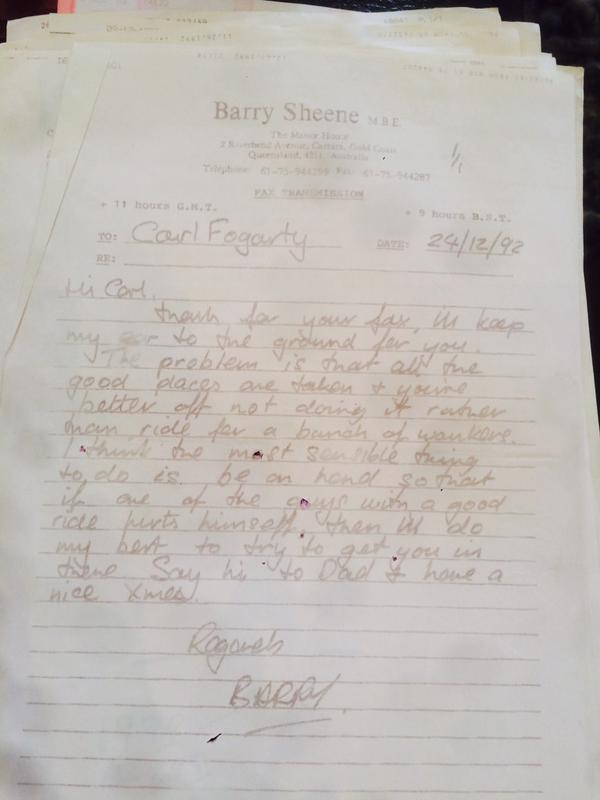 Barry Sheene M.B.E.
The Manor House
2 Riverbend Avenue, Carrara, Gold Coast
Queensland, 4211, Australia
Telephone: 61-75-944299 Fax: 61-75-944287
1/1
FAX TRANSMISSION
+ 11 hours G.M.T. + 9 hours B.S.T.
TO: Carl Fogarty DATE: 24/12/92
RE:
Hi Carl,
thank for your fax, I'll keep
my ear to the ground for you.
The problem is that all the
good places are taken & you're
better off not doing it rather
than ride for a bunch of wankers.
I think the most sensible thing
to do is be on hand so that
if one of the guys with a good
ride hurts himself, then I'll do
my best to try to get you in
there. Say hi to Dad & have a
nice Xmas.
Regards
BARRY